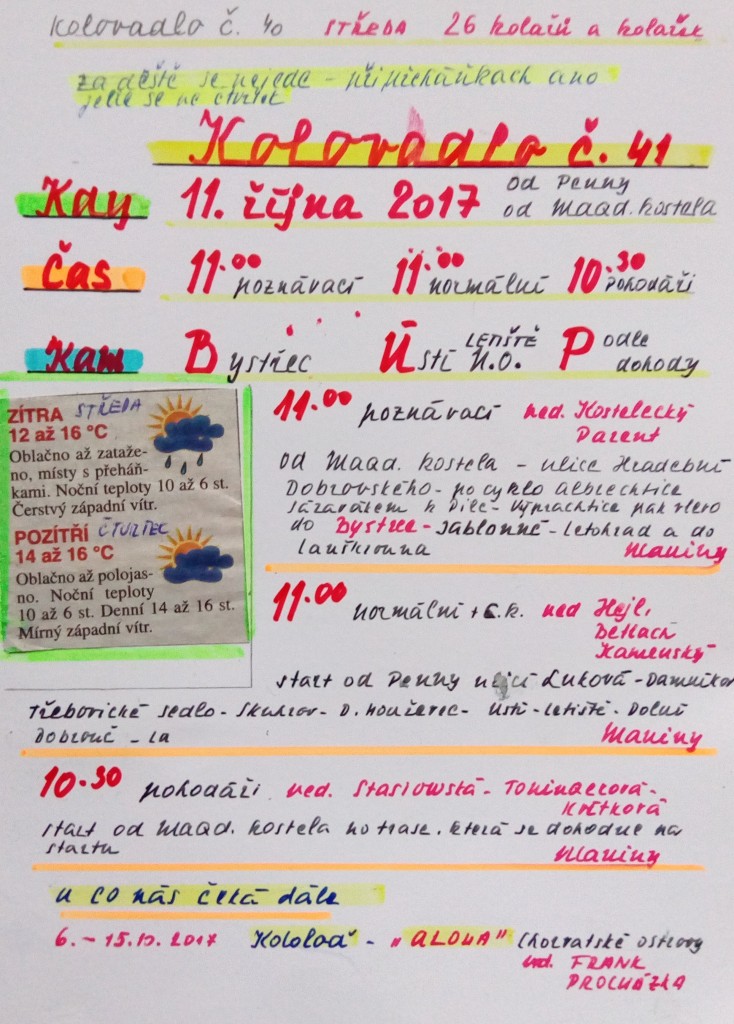 Kolovadlo č. 40 STŘEDA 26 kolařů a kolařek
za deště se nejede - při přeháňkách ano
jede se ve čtvrtek
Kolovadlo č. 41
Kdy 11. října 2017 od Penny
od Maad. kostela
Čas 11.00 poznávací 11.00 normální 10.30 pohodáři
Kam Bystřec Ústí N.O. LETIŠTĚ Podle
dohody
ZÍTRA STŘEDA
12 až 16 °C
Oblačno až zataže-
no, místy s přeháň-
kami. Noční teploty 10 až 6 st.
Čerstvý západní vítr.
POZÍTŘÍ ČTVRTEC
14 až 16 °C
Oblačno až polojas-
no. Noční teploty
10 až 6 st. Denní 14 až 16 st.
Mírný západní vítr.
11.00 poznávací ved. Kostelecký
Parent
od Maad. kostela - ulice Hradební
Dobrovského - po cyklo Albrechtice
k Pile - Výprachtice pak vlevo
do Bystřec - Jablonné - Letohrad a do
Lanškrouna Maviny
11.00 normální + c.k. ved Hejl,
Betlach
Kamenský
start od Penny ulicí Luková - Damníkov
Třebovické sedlo - Skuhrov - D. Houžovec - Ústí - letiště - Dolní
Dobrouč - La Maviny
10.30 pohodáři ved. Stasiowská -
Krátková
start od Maad. kostela po trase, která se dohodne na
startu Maviny
A co nás čeká dále
6. - 15.10. 2017 Kololoď - „ALOHA" Chorvatské ostrovy
ved. FRANK
PROCHÁZKA